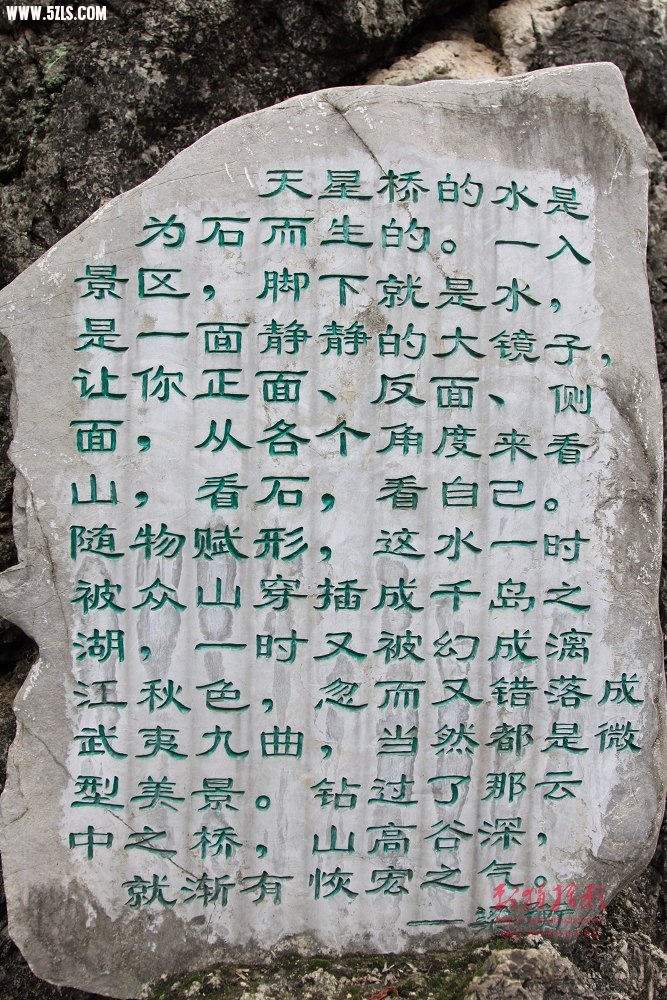 WWW.5ZLS.COM
天星桥的水是
为石而生的。一入
景区，脚下就是水，
是一面静静的大镜子，
让你正面、反面、侧
面，从各个角度来看
山，看石，看自己。
随物赋形，这水一时
被众山穿插成千岛之
湖，一时又被幻成漓
江秋色，忽而又错落成
武夷九曲，当然都是微
型美景。钻过了那云
中之桥，山高谷深，
就渐有恢宏之气。